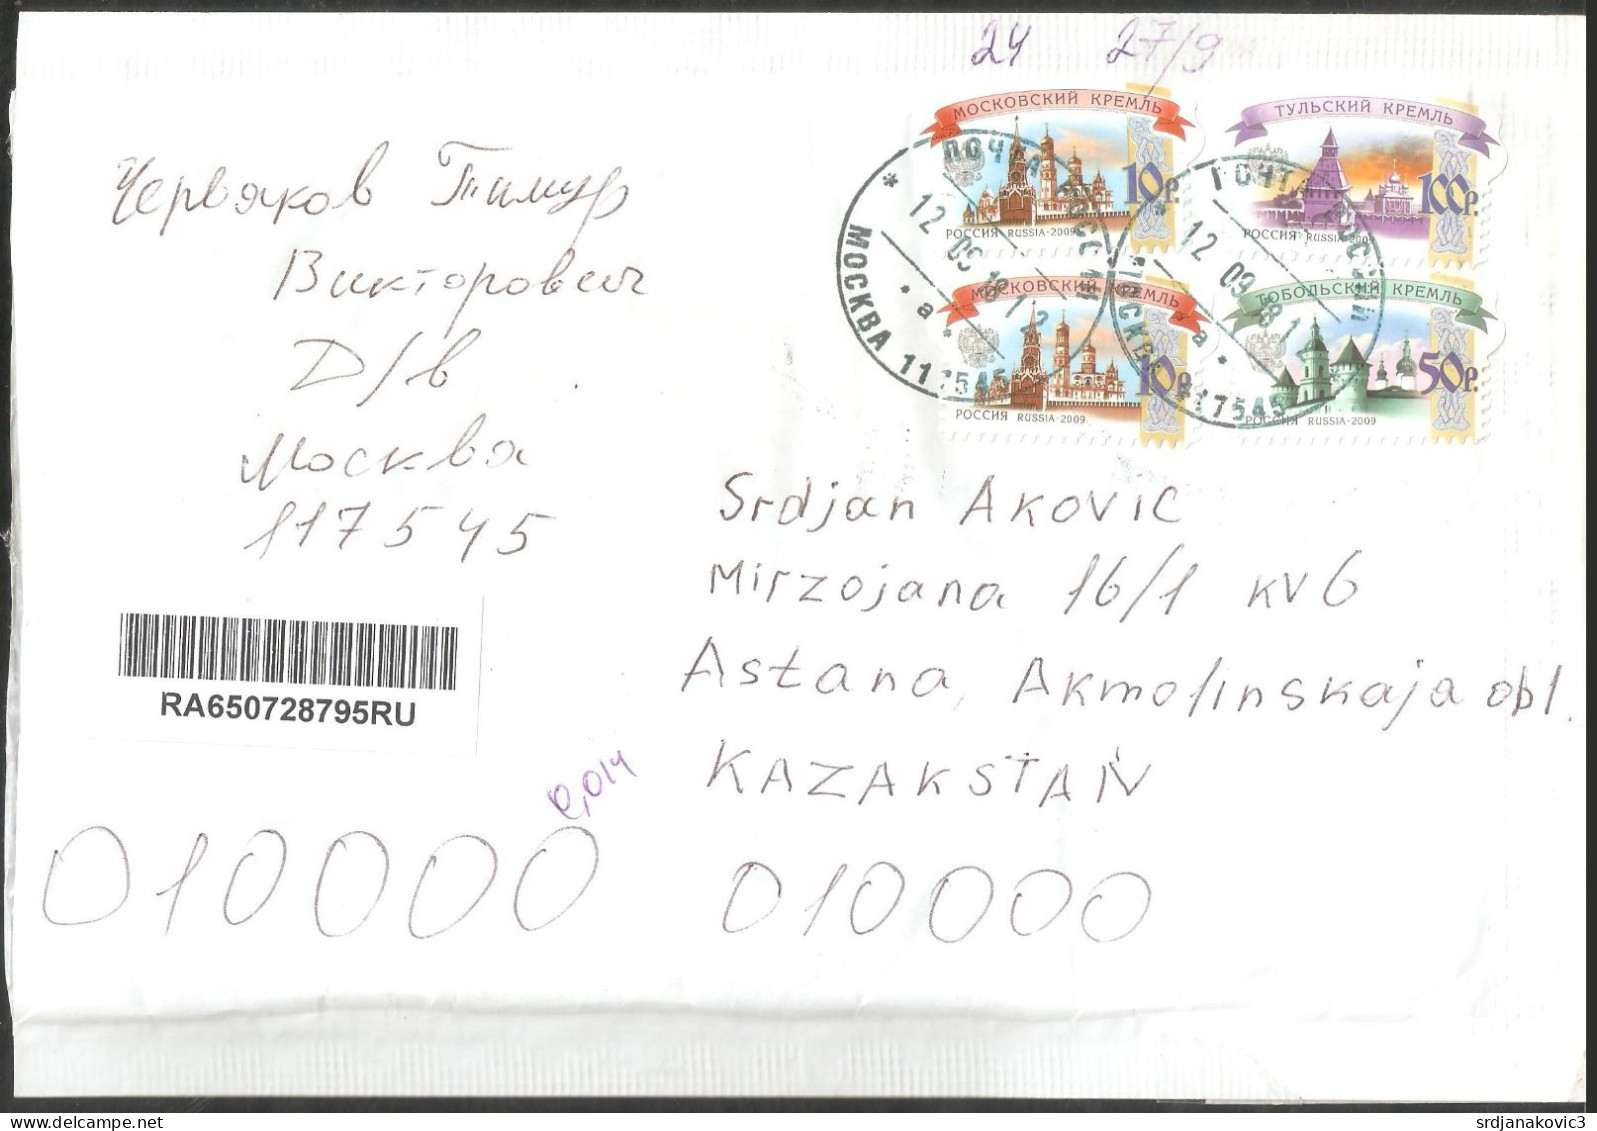 24 27/9
МОСКОВСКИЙ КРЕМЛЬ
10р.
РОССИЯ RUSSIA·2009
ТУЛЬСКИЙ КРЕМЛЬ
100р.
РОССИЯ RUSSIA·2009
МОСКОВСКИЙ КРЕМЛЬ
10р.
РОССИЯ RUSSIA·2009
ТОБОЛЬСКИЙ КРЕМЛЬ
50р.
РОССИЯ RUSSIA·2009
ПОЧТА РОССИИ
12 09
МОСКВА 117545
* а *
12 09
117545
Червяков Тимур
Викторович
Д/в
Москва
117545
RA650728795RU
0,014
010000
Srdjan AKOVIC
Mirzojana 16/1 KV6
Astana, Akmolinskaja obl.
KAZAKSTAN
010000
srdjanakovic3